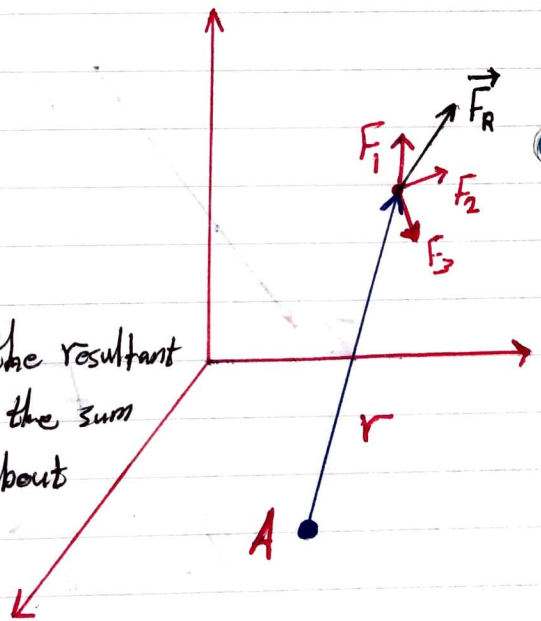 F⃗_R
F₁
F₂
F₃
the resultant
the sum
bout
r
A